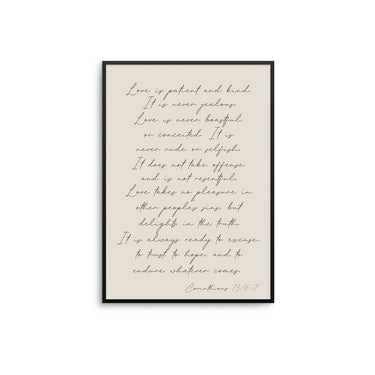 Love is patient and kind.
It is never jealous.
Love is never boastful
or conceited. It is
never rude or selfish.
It does not take offense
and is not resentful.
Love takes no pleasure in
other peoples sins, but
delights in the truth.
It is always ready to excuse,
to trust, to hope, and to
endure whatever comes.
Corinthians 13:4-7